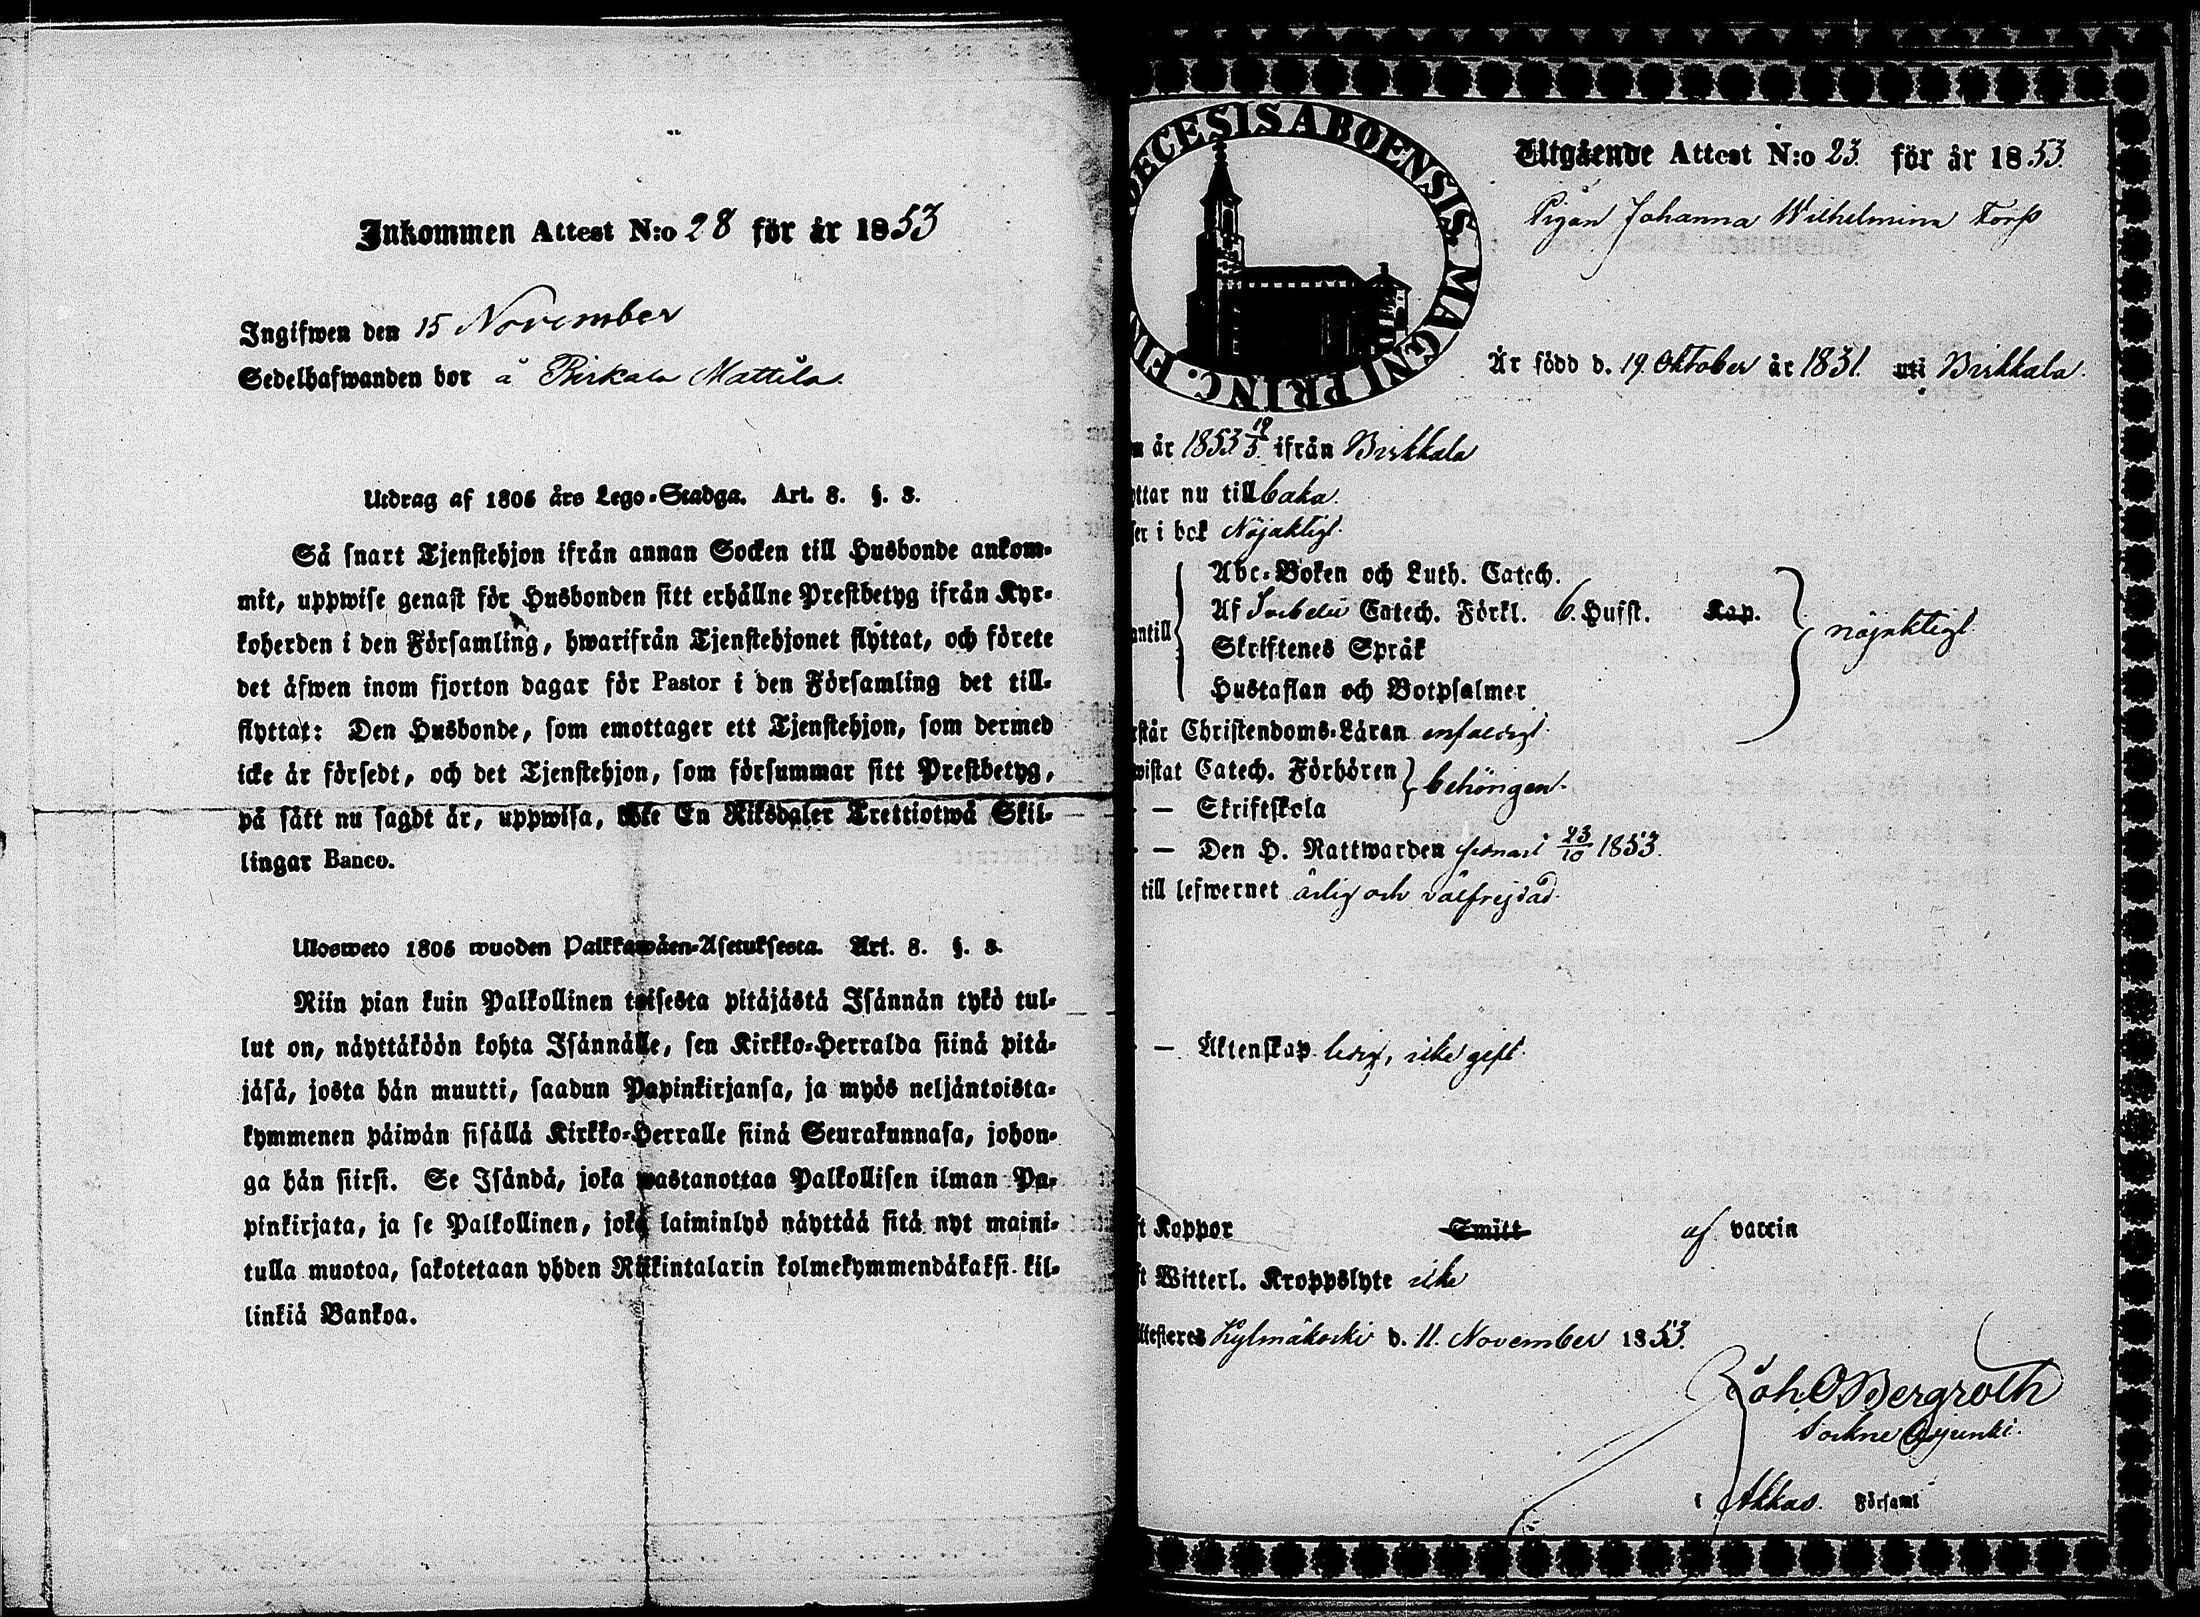 Inkommen Attest N:o 28 för år 1853
Ingifwen den 15 November
Sedelhafwanden bor å Birkala Mattila.
Utdrag af 1805 års Lego-Stadga. Art. 8. §. 3.
Så snart Tjenstehjon ifrån annan Socken till Husbonde ankom-
mit, uppwise genast för Husbonden sitt erhållne Prestbetyg ifrån Kyr-
koherden i den Församling, hwarifrån Tjenstehjonet flyttat, och förete
det äfwen inom fjorton dagar för Pastor i den Församling det till-
flyttat: Den Husbonde, som emottager ett Tjenstehjon, som dermed
icke är försedt, och det Tjenstehjon, som försummar sitt Prestbetyg,
på sätt nu sagdt är, uppwisa, böte En Riksdaler Trettiotwå Skil-
lingar Banco.
Ulosweto 1805 wuoden Palkkawäen-Asetuksesta. Art. 8. §. 3.
Niin pian kuin Palkollinen toisesta pitäjästä Isännän tykö tul-
lut on, näyttäköön kohta Isännälle, sen Kirkko-Herralda siinä pitä-
jäsä, josta hän muutti, saadun Papinkirjansa, ja myös neljäntoista-
kymmenen päiwän sisällä Kirkko-Herralle siinä Seurakunnasa, johon-
ga hän siirsi. Se Isändä, joka wastanottaa Palkollisen ilman Pa-
pinkirjata, ja se Palkollinen, joka laiminlyö näyttää sitä nyt maini-
tulla muotoa, sakotetaan yhden Riikintalarin kolmekymmendäkaksi kil-
linkiä Bankoa.
DIECESIS ABOENSIS. MAGNI PRINC. FIN
Utgående Attest N:o 23. för år 1853.
Pigan Johanna Wilhelmina Forss
Är född d. 19 Oktober år 1831. uti Birkkala.
n år 1853 19/3. ifrån Birkkala
ttar nu tillbaka.
ser i bok Nöjaktigt.
Abc-Boken och Luth. Catech.
Af Catech. Förkl. 6. Hufst. Kap.
antill
nöjaktigt
Skriftenes Språk
Hustaflan och Botpsalmer
rstår Christendoms-Läran enfaldigt.
wistat Catech. Förhören
behörigen.
— — Skriftskola
— — Den H. Nattwarden senast 23/10 1853.
till lefwernet ärlig och välfrejdad.
— — Äktenskap ledig, icke gift.
ft Koppor Smitt af vaccin
ft Witterl. Kroppslyte icke
Attesteres Kylmäkoski d. 11. November 1853.
Joh O Bergroth
Sockne Adjunkt.
i Akkas. Församl